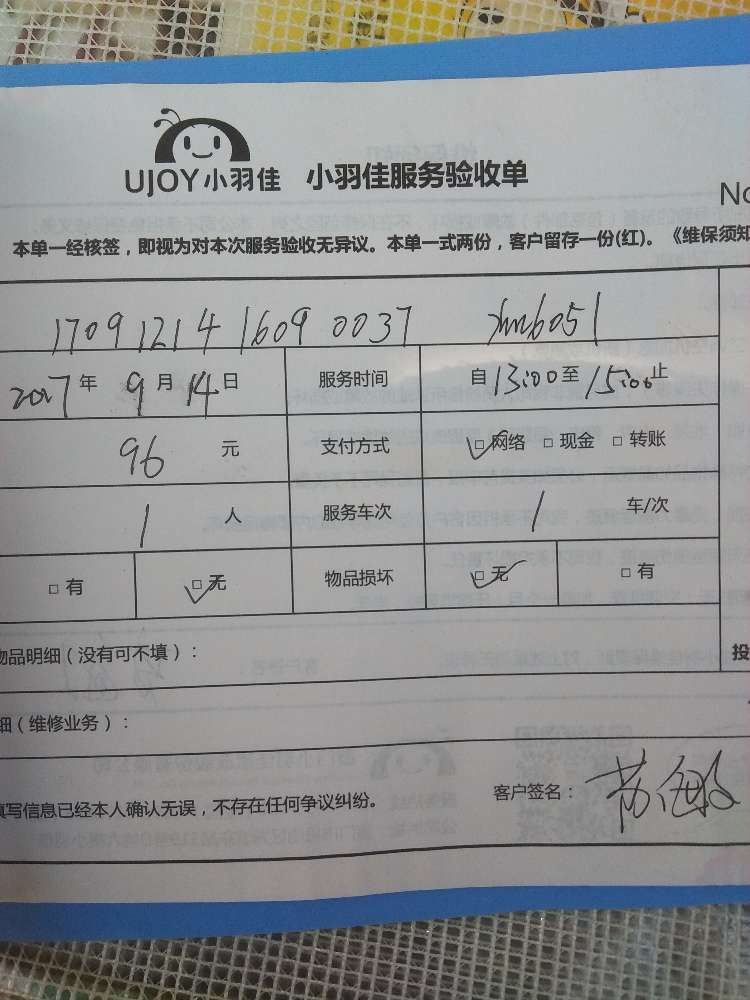 UJOY小羽佳 小羽佳服务验收单
No
本单一经核签，即视为对本次服务验收无异议。本单一式两份，客户留存一份(红)。《维保须知
1709 1214 1609 0037 xhm6051
2017年9月14日 服务时间 自13:00至15:00止
96元 支付方式 □网络 □现金 □转账
1人 服务车次 1车/次
□有 □无 物品损坏 □无 □有
物品明细（没有可不填）： 投
细（维修业务）：
填写信息已经本人确认无误，不存在任何争议纠纷。 客户签名：